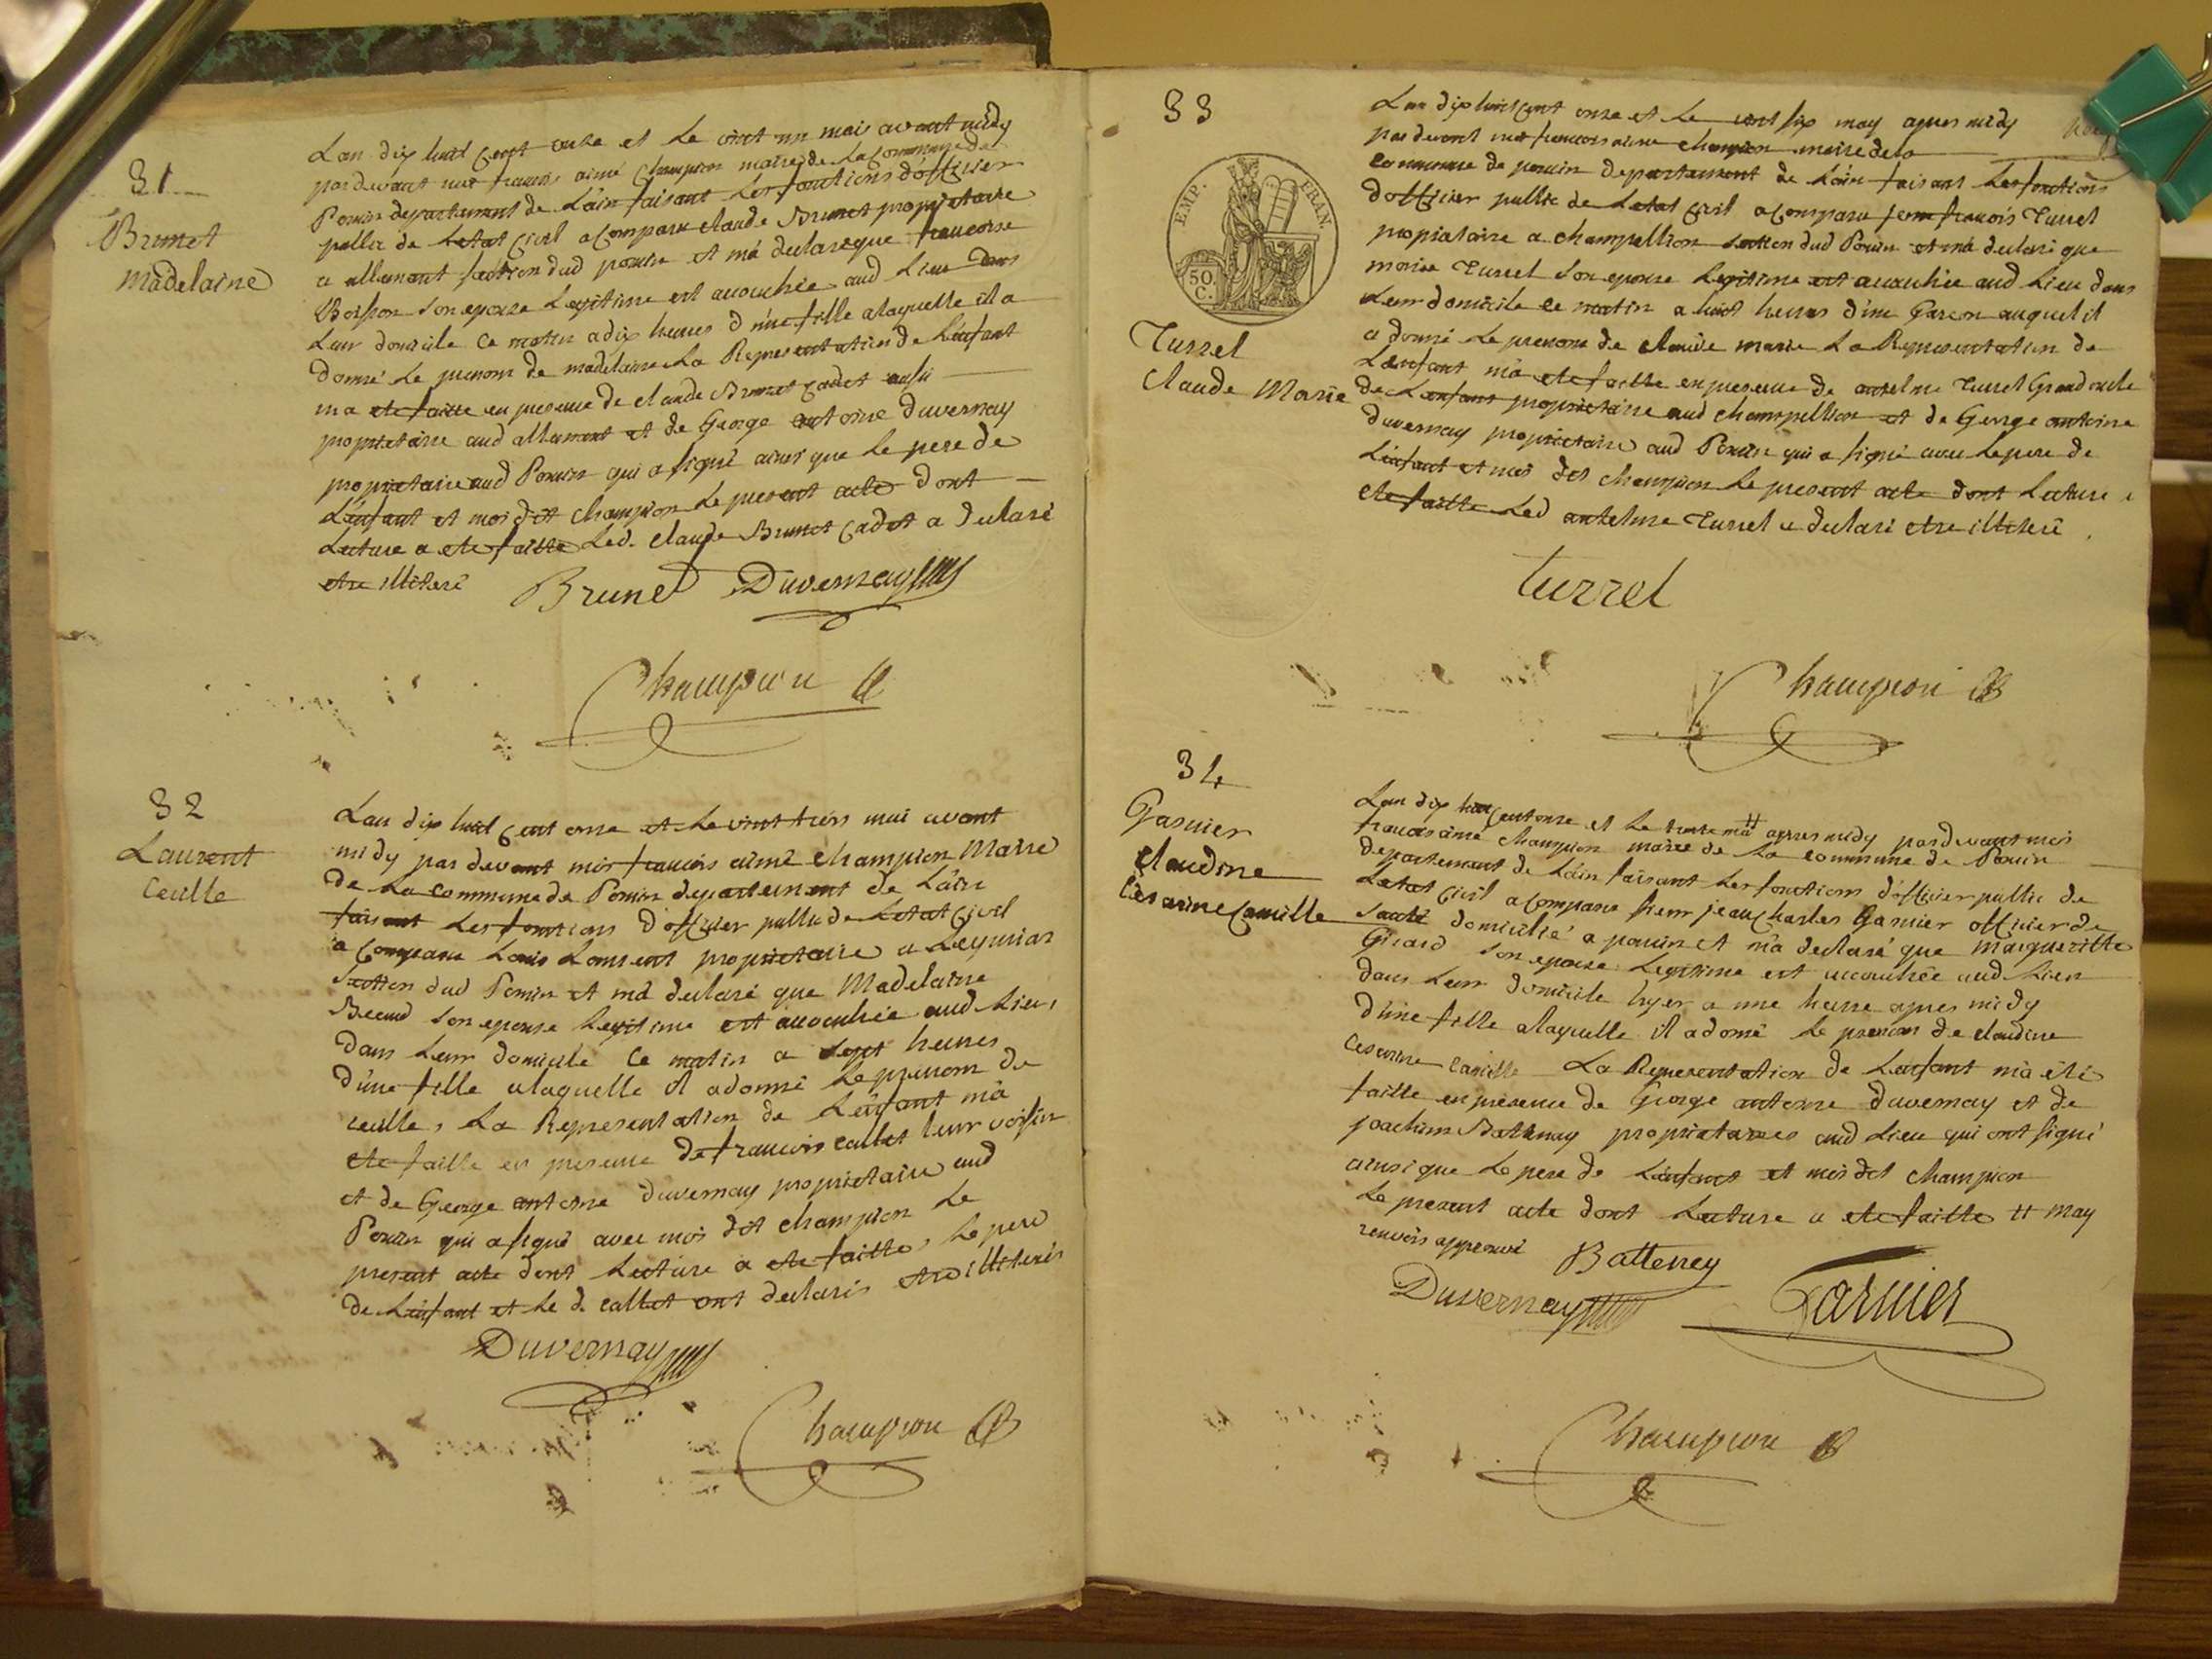 31
Brunet
Madelaine
Lan dix huit cent onze et Le vint un mais avant midy
pardevant moi francois aimé Champion maire de La Commune de
Poncin departement de Lain faisant Les fonctions d'officier
public de Letat Civil a Comparu claude Brunet propriétaire
a allement section dud poncin et m'a declaré que francoise
Boisson son epouse Legitime est accouchée aud Lieu dans
Leur domicile ce matin a dix heures d'une fille alaquelle il a
donné Le prenom de madelaine La Representation de L'enfant
m'a eté faitte en presence de claude Brunet cadet
propriétaire aud allement et de George antoine Duvernay
propriétaire aud Poncin qui a signé ainsi que Le pere de
L'enfant et moi dit Champion Le present acte dont
Lecture a eté faitte Led. claude Brunet Cadet a declaré
etre illiteré
Brunet Duvernay
Champion
32
Laurent
Ceculle
Lan dix huit cent onse et Le vint trois mai avant
midy par devant moi francois aimé Champion Maire
de La Commune de Poncin departement de Lain
faisant Les fonctions d'officier public de Letat Civil
a Comparu Louis Laurent propriétaire a
section dud Poncin et m'a declaré que Madelaine
son epouse Legitime est accouchée aud Lieu,
dans Leur domicile ce matin a sept heures
d'une fille alaquelle il a donné Le prenom de
ceculle, La Representation de L'enfant m'a
eté faitte en presence de francois callet leur voisin
et de George antoine duvernay propriétaire aud
Poncin qui a signé avec moi dit champion Le
present acte dont Lecture a eté faitte, Le pere
de L'enfant et Le d. callet ont declarés etre illiterés
Duvernay
Champion
33
EMP. FRAN.
50 C.
Turrel
Claude Marie
Lan dix huit cent onze et Le vint six may apres midy
pardevant moi francois aimé champion maire de la
commune de poncin departement de Lain faisant Les fonctions
d'officier public de Letat Civil a comparu jean francois Turrel
propriataire a champellion section dud Poncin et m'a declaré que
marie Turrel son epouse Legitime est accouchée aud Lieu dans
Leur domicile ce matin a huit heures d'un Garcon auquel il
a donné Le prenom de claude marie La Representation de
L'enfant m'a eté faitte en presence de antelme Turrel Grand oncle
de L'enfant propriétaire aud champellion et de George antoine
duvernay propriétaire aud Poncin qui a signé avec Le pere de
L'enfant et moi dit champion Le present acte dont Lecture a
eté faitte Led antelme Turrel a declaré etre illiteré
Turrel
Champion
34
Garnier
Claudine
Cesarine Camille
Lan dix huit cent onze et Le trente mai # apres midy pardevant moi
francois aimé champion maire de La commune de Poncin
departement de Lain faisant Les fonctions d'officier public de
Letat Civil a Comparu sieur jean charles Garnier officier de
santé domicilié a poncin et m'a declaré que Marguerittte
Girard son epouse Legitime est accouchée aud Lieu
dans Leur domicile hyer a une heure apres midy
d'une fille alaquelle il a donné Le prenom de claudine
Cesarine Camille La Representation de L'enfant m'a été
faitte en presence de George antoine duvernay et de
joachim Battenay propriataires aud Lieu qui ont signé
ainsi que Le pere de L'enfant et moi dit Champion
Le present acte dont Lecture a eté faitte # may
renvois approuvé
Battenay
Duvernay Garnier
Champion